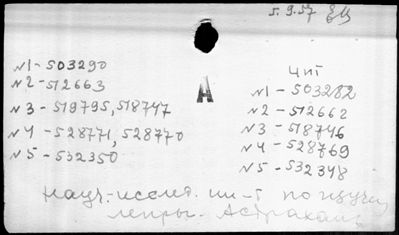 5.9.57
N1-503290
N2-512663
N3-519795, 518747
N4-528771, 528770
N5-532350
А
Чит
N1-503282
N2-512662
N3-518746
N4-528769
N5-532348
Науч.-исслед. ин-т по изуче
лепры. Астрахань